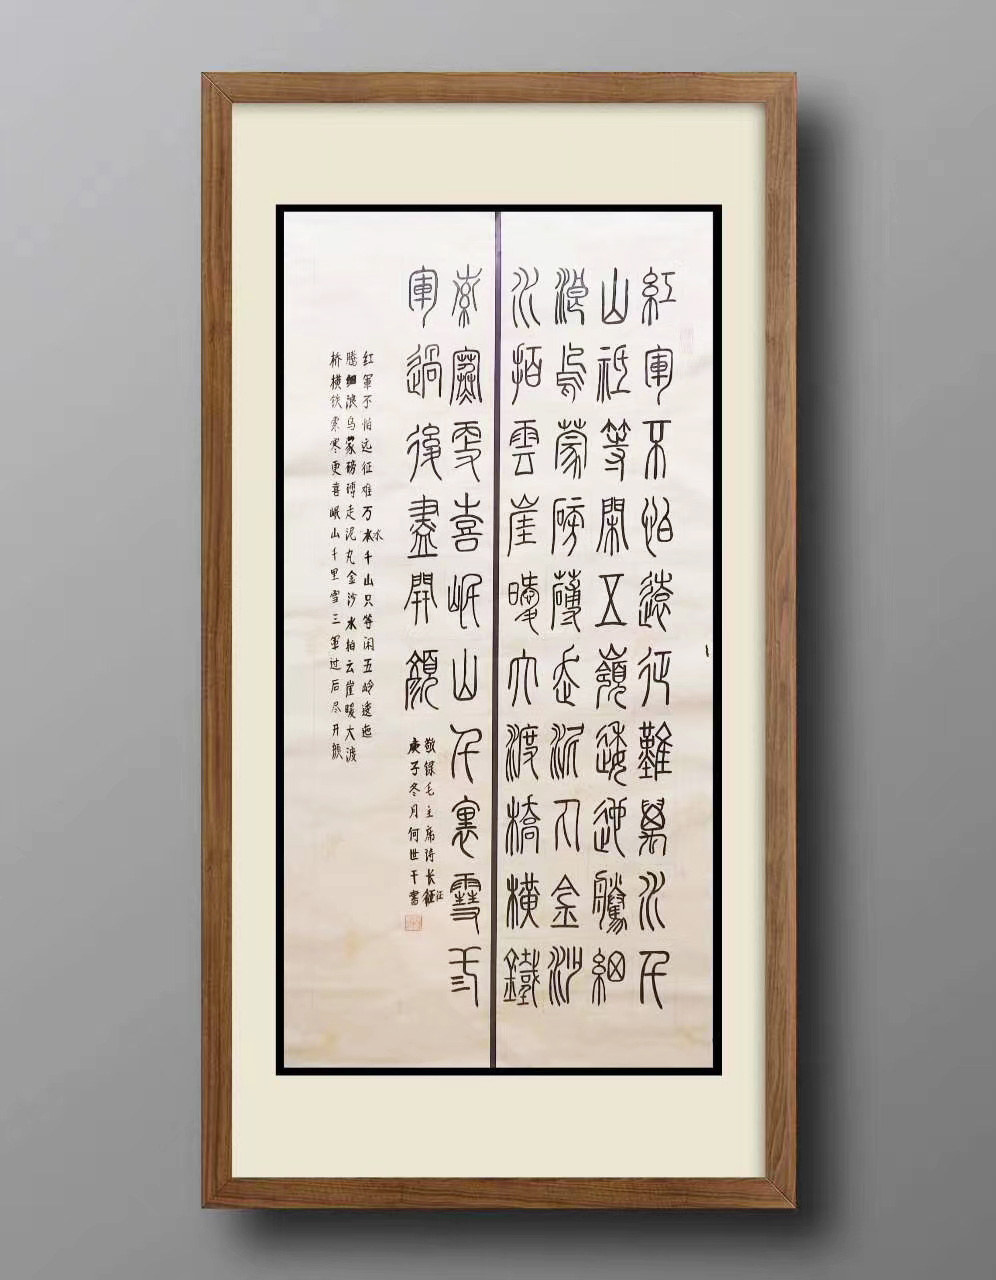 紅軍不怕遠征難萬水千
山祗等閑五嶺逶迤騰細
浪烏蒙磅礴走泥丸金沙
水拍雲崖暖大渡橋橫鐵
索寒更喜岷山千裏雪三
軍過後盡開顏
敬録毛主席诗长征
征
庚子冬月何世干書
红軍不怕远征难万水千山只等闲五岭逶迤
水
腾细浪乌蒙磅礴走泥丸金沙水拍云崖暖大渡
桥横铁索寒更喜岷山千里雪三軍过后尽开颜